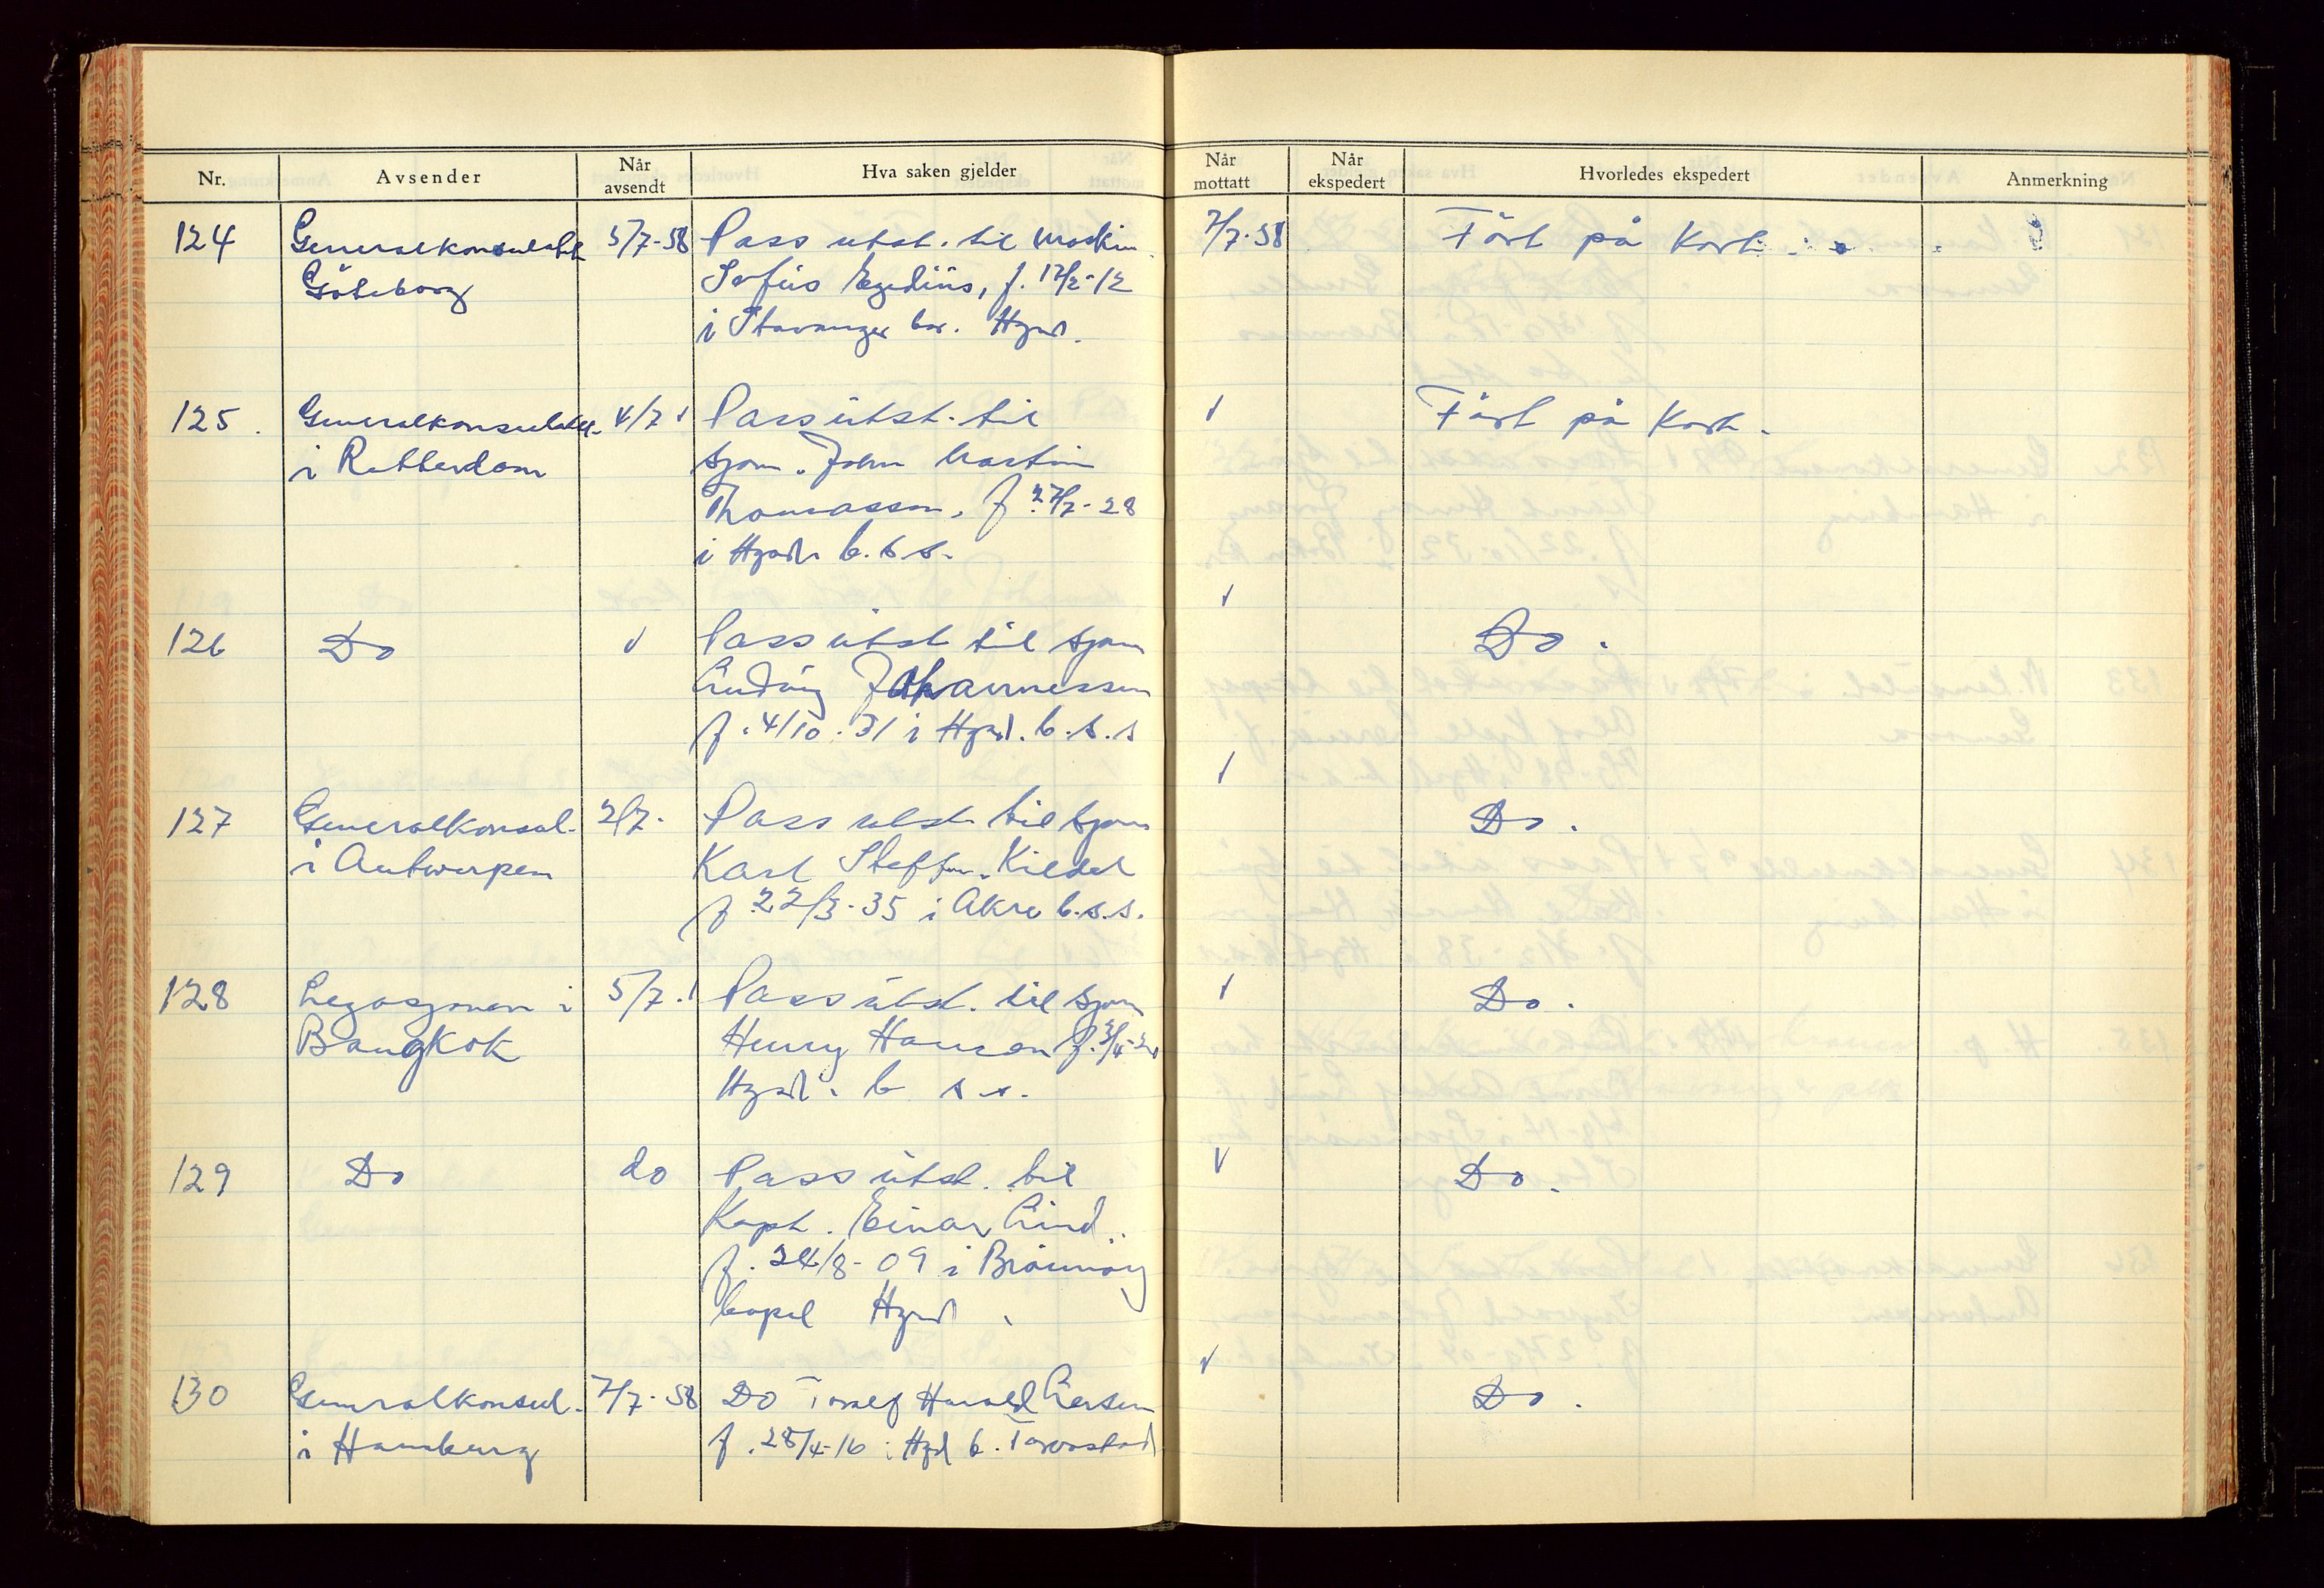 Nr. Avsender Når avsendt Hva saken gjelder Når mottatt Når ekspedert Hvorledes ekspedert Anmerkning
124 Generalkonsulatet 5/7-58 Pass utst. til maskin. 7/7-58 Ført på Kort.
Göteborg Sofus Egediüs, f. 12/2-12
i Stavanger bor. Hgsd.
125. Generalkonsulatet. 4/7 Pass utst. til Ført på Kort.
i Rotterdam sjøm. John Martin
Thomassen, f 27/7-28
i Hgsd. b. s s.
126 Do Pass utst til sjøm Do.
Ludvig Johannessen
f. 4/10.31 i Hgsd. b.s.s
127 Generalkonsul. 2/7. Pass utst til sjøm Do.
i Antwerpen Karl Steffen. Kildal
f 22/3-35 i Åkra b.s.s.
128 Legasjonen i 5/7. Pass utst. til sjøm Do.
Bangkok Henry Hansen f.
Hgsd. b s s.
129 Do do Pass utst. til Do.
Kapt. Einar Lind
f. 24/8-09 i Brønnøy
bopel Hgsd.
130 Generalkonsul. 7/7-58 Do Toralf Harald Larsen Do.
i Hamburg f. 28/4-16 i Hgsd b. Torvastad